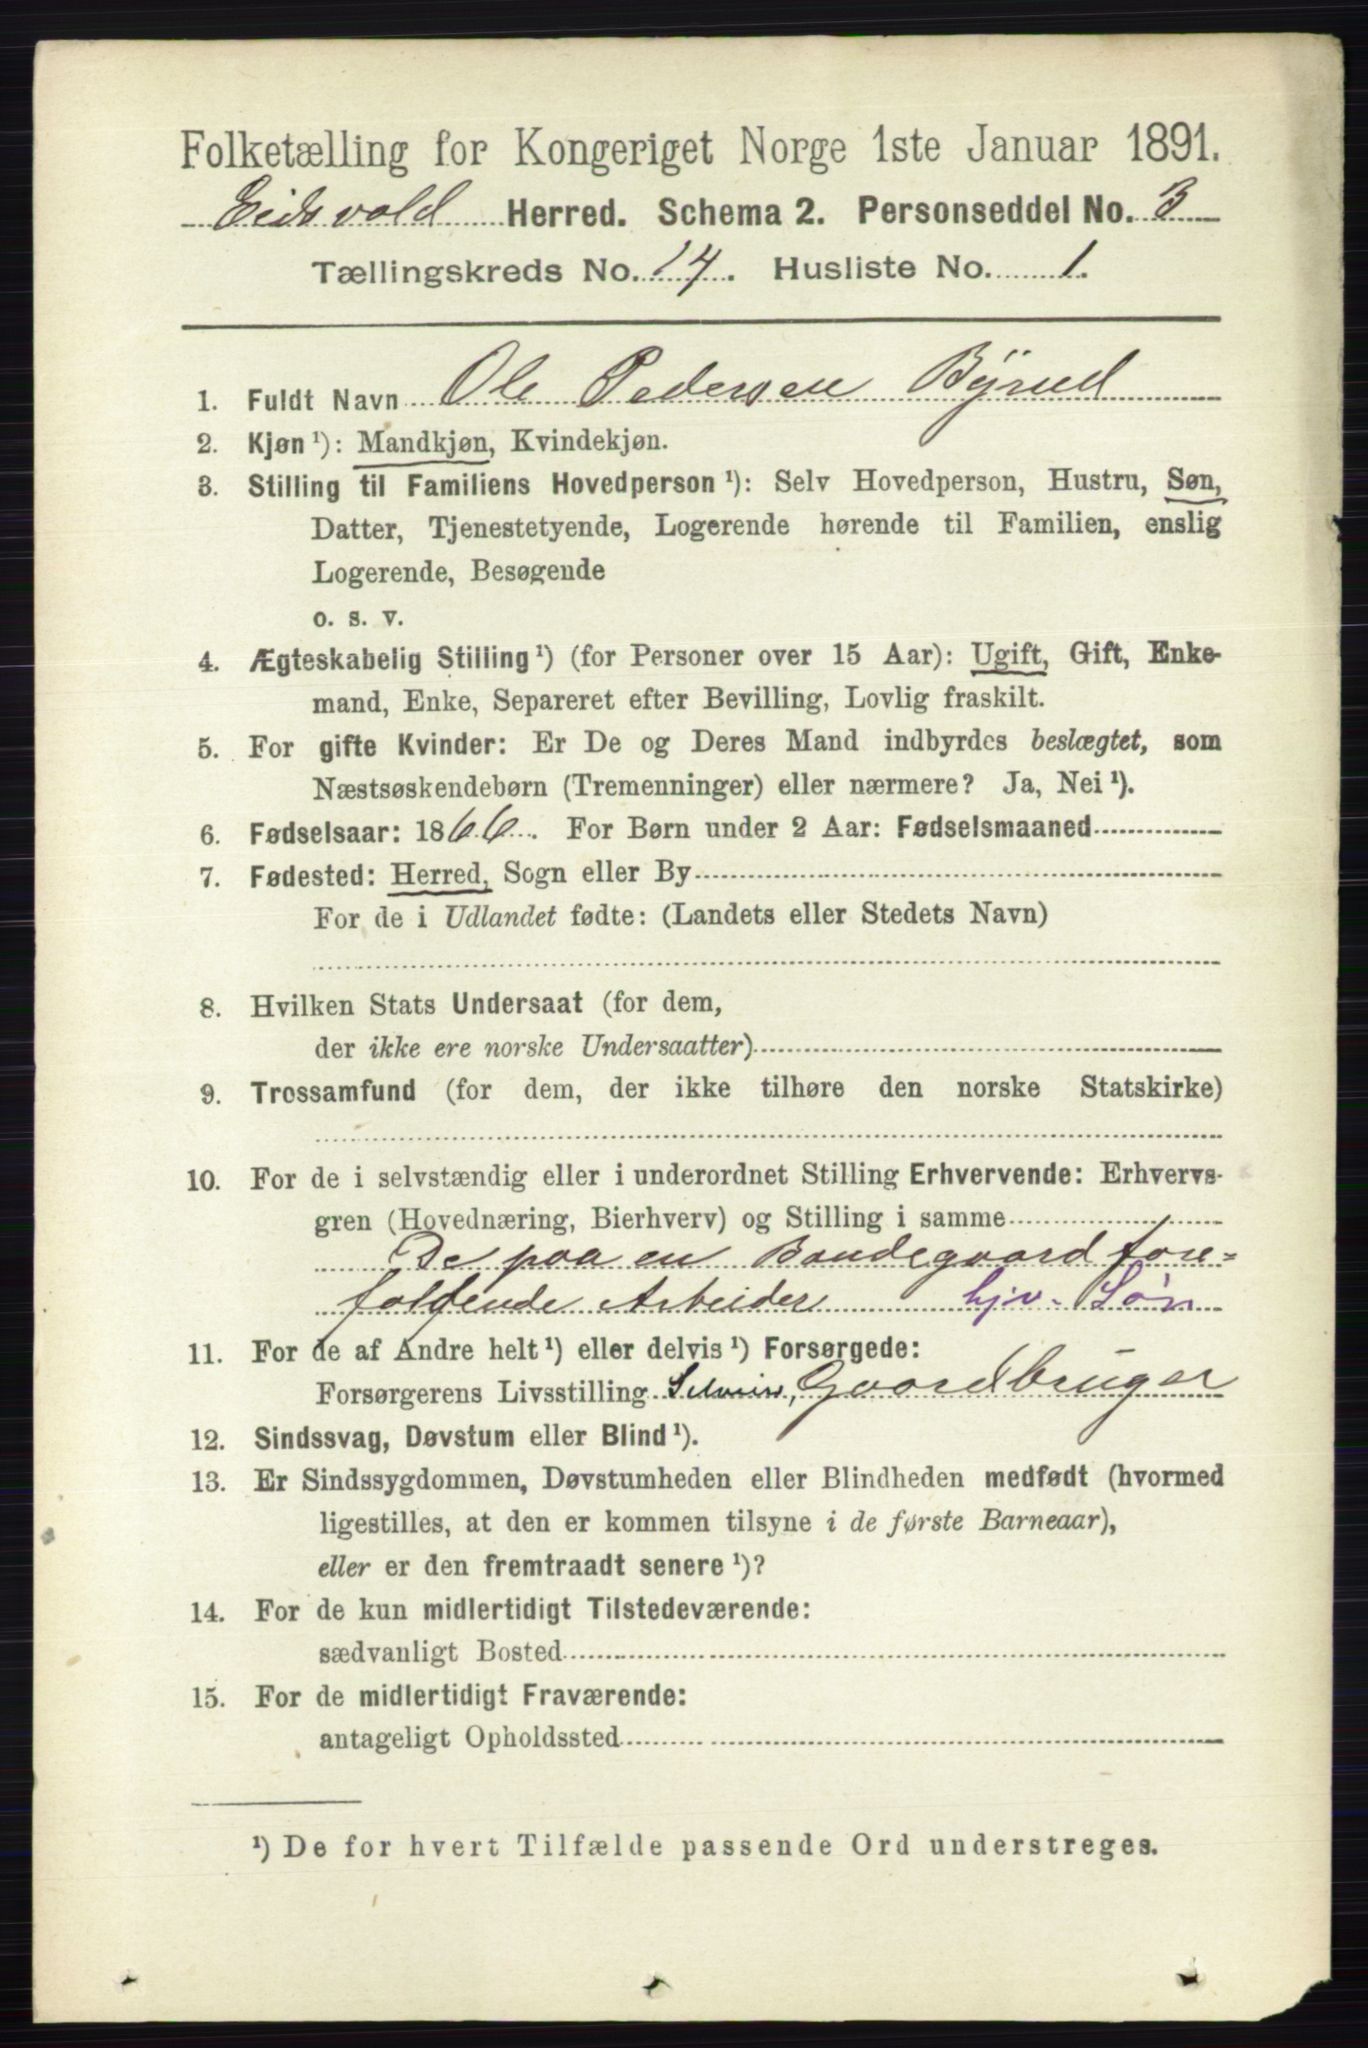 Folketælling for Kongeriget Norge 1ste Januar 1891.
Eidsvold Herred. Schema 2. Personseddel No. 3
Tællingskreds No. 14. Husliste No. 1.
1. Fuldt Navn Ole Pedersen Byrud
2. Kjøn ¹): Mandkjøn, Kvindekjøn.
3. Stilling til Familiens Hovedperson ¹): Selv Hovedperson, Hustru, Søn,
Datter, Tjenestetyende, Logerende hørende til Familien, enslig
Logerende, Besøgende
o. s. v.
4. Ægteskabelig Stilling ¹) (for Personer over 15 Aar): Ugift, Gift, Enke-
mand, Enke, Separeret efter Bevilling, Lovlig fraskilt.
5. For gifte Kvinder: Er De og Deres Mand indbyrdes beslægtet, som
Næstsøskendebørn (Tremenninger) eller nærmere? Ja, Nei ¹).
6. Fødselsaar: 1866. For Børn under 2 Aar: Fødselsmaaned
7. Fødested: Herred, Sogn eller By
For de i Udlandet fødte: (Landets eller Stedets Navn)
8. Hvilken Stats Undersaat (for dem,
der ikke ere norske Undersaatter)
9. Trossamfund (for dem, der ikke tilhøre den norske Statskirke)
10. For de i selvstændig eller i underordnet Stilling Erhvervende: Erhvervs-
gren (Hovednæring, Bierhverv) og Stilling i samme
De paa en Bondegaard fore=
faldende Arbeider hjv. Søn
11. For de af Andre helt ¹) eller delvis ¹) Forsørgede:
Forsørgerens Livsstilling Gaardbruger
12. Sindssvag, Døvstum eller Blind ¹).
13. Er Sindssygdommen, Døvstumheden eller Blindheden medfødt (hvormed
ligestilles, at den er kommen tilsyne i de første Barneaar),
eller er den fremtraadt senere ¹)?
14. For de kun midlertidigt Tilstedeværende:
sædvanligt Bosted
15. For de midlertidigt Fraværende:
antageligt Opholdssted
¹) De for hvert Tilfælde passende Ord understreges.